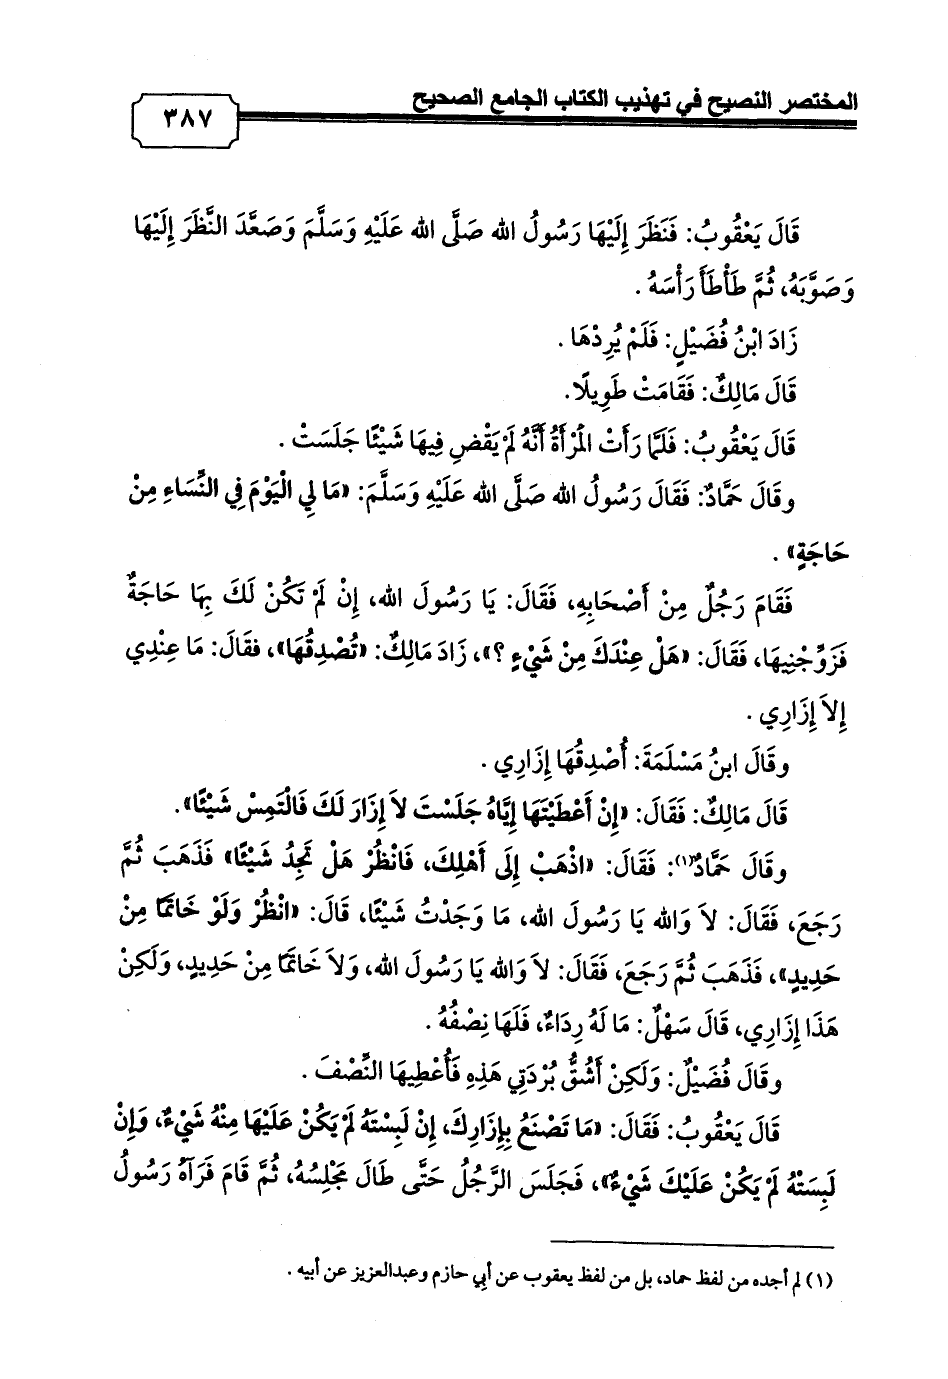 المختصر النصيح في تهذيب الكتاب الجامع الصحيح
٣٨٧
قَالَ يَعْقُوبُ: فَنَظَرَ إِلَيْهَا رَسُولُ الله صَلَّى الله عَلَيْهِ وَسَلَّمَ وَصَعَّدَ النَّظَرَ إِلَيْهَا
وَصَوَّبَهُ، ثُمَّ طَأْطَأَ رَأْسَهُ .
زَادَ ابْنُ فُضَيْلٍ: فَلَمْ يُرِدْهَا .
قَالَ مَالِكٌ: فَقَامَتْ طَوِيلًا.
قَالَ يَعْقُوبُ: فَلَمَّا رَأَتْ الْمَرْأَةُ أَنَّهُ لَمْ يَقْضِ فِيهَا شَيْئًا جَلَسَتْ .
وقَالَ حَمَّادٌ: فَقَالَ رَسُولُ الله صَلَّى الله عَلَيْهِ وَسَلَّمَ: «مَا لِي الْيَوْمَ فِي النِّسَاءِ مِنْ
حَاجَةٍ» .
فَقَامَ رَجُلٌ مِنْ أَصْحَابِهِ، فَقَالَ: يَا رَسُولَ الله، إِنْ لَمْ تَكُنْ لَكَ بِهَا حَاجَةٌ
فَزَوِّجْنِيهَا، فَقَالَ: «هَلْ عِنْدَكَ مِنْ شَيْءٍ ؟»، زَادَ مَالِكٌ: «تُصْدِقُهَا»، فقَالَ: مَا عِنْدِي
إِلاَ إِزَارِي .
وقَالَ ابنُ مَسْلَمَةَ: أُصْدِقُهَا إِزَارِي .
قَالَ مَالِكٌ: فَقَالَ: «إِنْ أَعْطَيْتَهَا إِيَّاهُ جَلَسْتَ لاَ إِزَارَ لَكَ فَالْتَمِسْ شَيْئًا».
وقَالَ حَمَّادٌ(١): فَقَالَ: «اذْهَبْ إِلَى أَهْلِكَ، فَانْظُرْ هَلْ تَجِدُ شَيْئًا» فَذَهَبَ ثُمَّ
رَجَعَ، فَقَالَ: لاَ وَالله يَا رَسُولَ الله، مَا وَجَدْتُ شَيْئًا، قَالَ: «انْظُرْ وَلَوْ خَاتَمًا مِنْ
حَدِيدٍ»، فَذَهَبَ ثُمَّ رَجَعَ، فَقَالَ: لاَ وَالله يَا رَسُولَ الله، وَلاَ خَاتَمًا مِنْ حَدِيدٍ، وَلَكِنْ
هَذَا إِزَارِي، قَالَ سَهْلٌ: مَا لَهُ رِدَاءٌ، فَلَهَا نِصْفُهُ .
وقَالَ فُضَيْلٌ: وَلَكِنْ أَشُقُّ بُرْدَتِي هَذِهِ فَأُعْطِيهَا النِّصْفَ .
قَالَ يَعْقُوبُ: فَقَالَ: «مَا تَصْنَعُ بِإِزَارِكَ، إِنْ لَبِسْتَهُ لَمْ يَكُنْ عَلَيْهَا مِنْهُ شَيْءٌ، وَإِنْ
لَبِسَتْهُ لَمْ يَكُنْ عَلَيْكَ شَيْءٌ»، فَجَلَسَ الرَّجُلُ حَتَّى طَالَ مَجْلِسُهُ، ثُمَّ قَامَ فَرَآهُ رَسُولُ
(١) لم أجده من لفظ حماد، بل من لفظ يعقوب عن أبي حازم وعبدالعزيز عن أبيه .